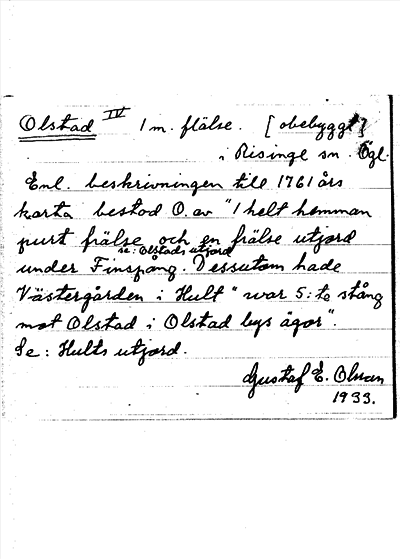 Olstad IV 1 m. flälse. [obebyggt]
i Risinge sn. Ögl.
Enl. beskrivningen till 1761 års
karta bestod O. av "1 helt hemman
purt frälse och en frälse utjord
se: Olstads utjord
under Finspong. Dessutom hade
Västergården i Hult "war 5:te stång
mot Olstad i Olstad bys ägor".
Se: Hults utjord.
Gustaf E. Olsson
1933.